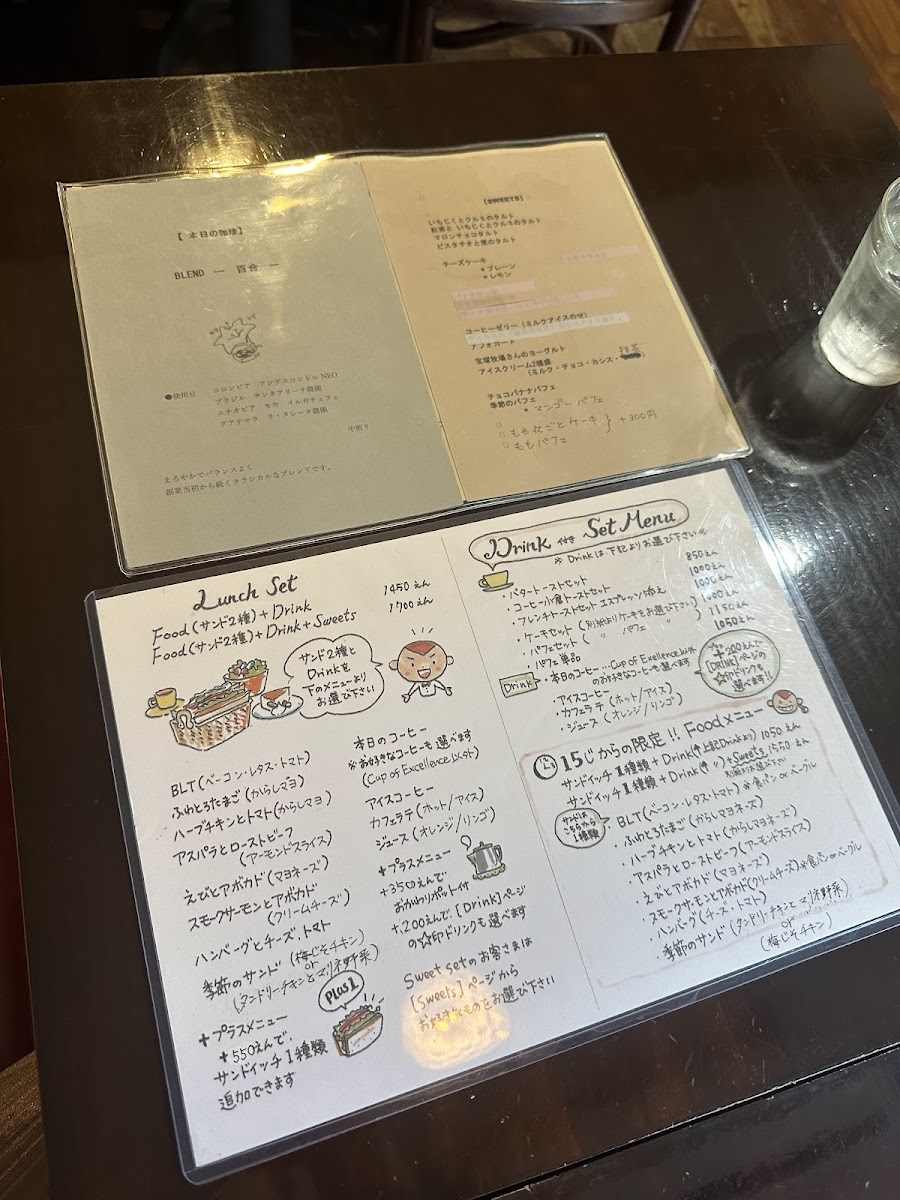 【 本日の珈琲】
BLEND ― 百合 ―
●使用豆 コロンビア アンデスコンドルNEO
ブラジル サンタアリーナ農園
エチオピア モカ イルガチェフェ
グアテマラ ラ・タシータ農園
中煎り
まろやかでバランスよく
創業当初から続くクラシカルなブレンドです。
[SWEETS]
いちじくとクルミのタルト
紅茶と いちじくとクルミのタルト
マロンチョコタルト
ピスタチオと栗のタルト
チーズケーキ
●プレーン
●レモン
コーヒーゼリー(ミルクアイスのせ)
アフォガート
宝塚牧場さんのヨーグルト
アイスクリーム2種盛
(ミルク・チョコ・カシス・抹茶
チョコバナナパフェ
季節のパフェ
• マンゴーパフェ
□ もも丸ごとケーキ } +300円
□ ももパフェ
Lunch Set
Food(サンド2種)+Drink 1450えん
Food(サンド2種)+Drink+Sweets 1700えん
サンド2種と
Drinkを
下のメニューより
お選び下さい
BLT(ベーコン・レタス・トマト)
ふわとろたまご(からしマヨ)
ハーブチキンとトマト(からしマヨ)
アスパラとローストビーフ
(アーモンドスライス)
えびとアボカド(マヨネーズ)
スモークサーモンとアボカド
(クリームチーズ)
ハンバーグとチーズ トマト
季節のサンド(梅じそチキン)
or
(タンドリーチキンとマリネ野菜)
+プラスメニュー
+550えんで、
サンドイッチ1種類
追加できます
Plus1
本日のコーヒー
※お好きなコーヒーも選べます
(Cup of Excellence以外)
アイスコーヒー
カフェラテ(ホット/アイス)
ジュース(オレンジ/リンゴ)
+プラスメニュー
+350えんで
おかわりポット付
+200えんで、[Drink]ページ
の☆印ドリンクも選べます
Sweet setのお客さまは
[Sweets]ページから
お好きなものをお選び下さい
Drink付き Set Menu
※ Drinkは下記よりお選び下さい
・バタートーストセット 850えん
・コーヒー小倉トーストセット 1000えん
・フレンチトーストセット エスプレッソ添え 1000えん
・ケーキセット(別紙よりケーキをお選び下さい) 1000えん
・パフェセット( 〃 パフェ 〃 ) 1150えん
・パフェ単品 1050えん
Drink
・本日のコーヒー …Cup of Exellence以外
のお好きなコーヒーも選べます
・アイスコーヒー
・カフェラテ(ホット/アイス)
・ジュース(オレンジ/リンゴ)
+200えんで
[DRINK]ページの
☆印ドリンクも
選べます!!
15じからの限定!! Foodメニュー
サンドイッチ1種類+Drink(上記Drinkより) 1050えん
サンドイッチ1種類+Drink(〃)+Sweets 1550えん
別紙よりお選び下さい
サンドは
こちらから
1種類
・BLT(ベーコン・レタス・トマト)※食パンorベーグル
・ふわとろたまご(からしマヨネーズ)
・ハーブチキンとトマト(からしマヨネーズ)
・アスパラとローストビーフ(アーモンドスライス)
・えびとアボカド(マヨネーズ)
・スモークサーモンとアボカド(クリームチーズ)※食パンorベーグル
・ハンバーグ(チーズ・トマト)
・季節のサンド(タンドリーチキンとマリネ野菜)
or
(梅じそチキン)